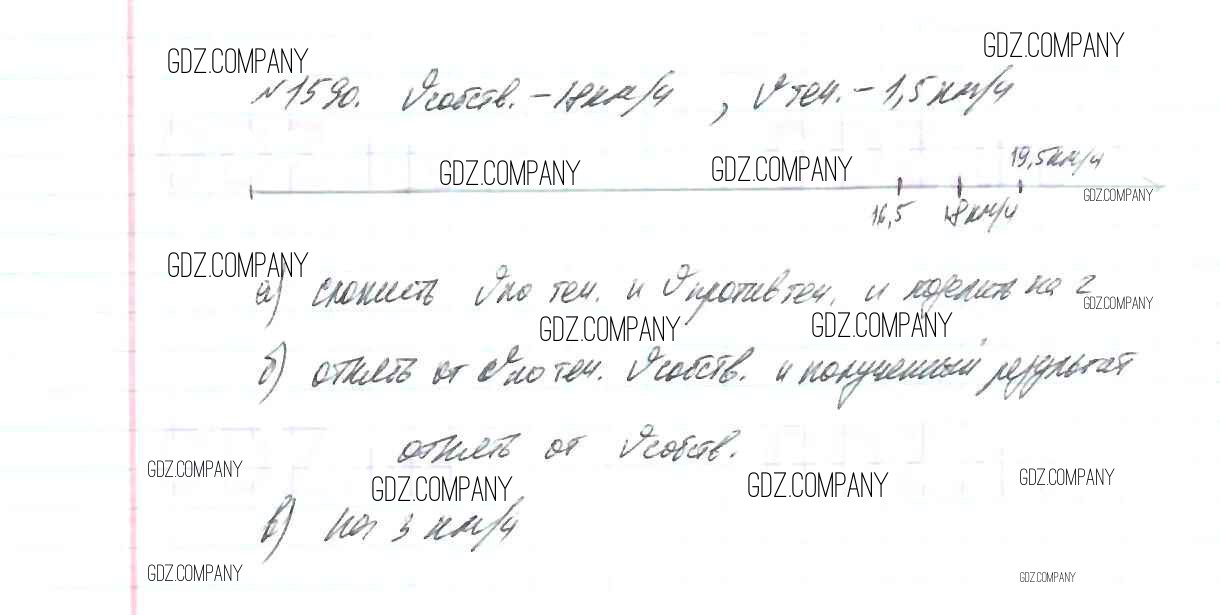 GDZ.COMPANY GDZ.COMPANY
№1590. Vсобств. – 18км/ч , V теч. – 1,5 км/ч
19,5км/ч
GDZ.COMPANY GDZ.COMPANY GDZ.COMPANY
16,5 18км/ч
GDZ.COMPANY
а) сложить V по теч. и V против теч. и поделить на 2
GDZ.COMPANY
GDZ.COMPANY GDZ.COMPANY
б) отнять от V по теч. V собств. и полученный результат
отнять от V собств.
GDZ.COMPANY GDZ.COMPANY GDZ.COMPANY GDZ.COMPANY
в) на 3 км/ч
GDZ.COMPANY GDZ.COMPANY